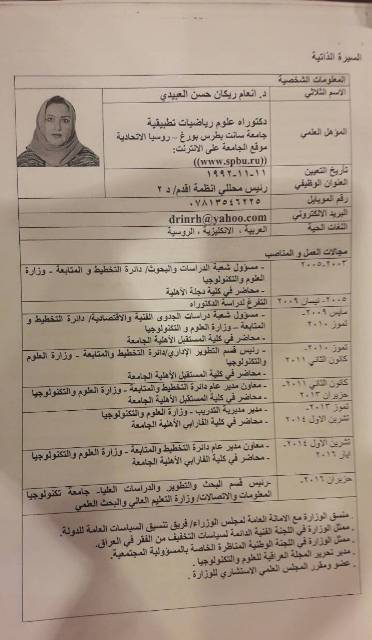 السيرة الذاتية
المعلومات الشخصية
الاسم الثلاثي
د. انعام ريكان حسن العبيدي
المؤهل العلمي
دكتوراه علوم رياضيات تطبيقية
جامعة سانت بطرس بورغ – روسيا الاتحادية
موقع الجامعة على الانترنت:
((www.spbu.ru))
تأريخ التعيين
١١-١١-١٩٩٢
العنوان الوظيفي
رئيس محللي انظمة اقدم/ د ٢
رقم الموبايل
٠٧٨١٣٥٤٦٢٢٥
البريد الالكتروني
drinrh@yahoo.com
اللغات الحية
العربية ، الانكليزية ، الروسية
مجالات العمل و المناصب
٢٠٠٣-٢٠٠٥
- مسؤول شعبة الدراسات والبحوث/ دائرة التخطيط و المتابعة - وزارة
العلوم والتكنولوجيا
- محاضر في كلية دجلة الاهلية
٢٠٠٥- نيسان ٢٠٠٩
التفرغ لدراسة الدكتوراه
مايس ٢٠٠٩-
تموز ٢٠١٠
- مسؤول شعبة دراسات الجدوى الفنية والاقتصادية/ دائرة التخطيط و
المتابعة - وزارة العلوم و التكنولوجيا
- محاضر في كلية المستقبل الاهلية الجامعة
تموز ٢٠١٠-
كانون الثاني ٢٠١١
- رئيس قسم التطوير الإداري/دائرة التخطيط والمتابعة - وزارة العلوم
والتكنولوجيا
- محاضر في كلية المستقبل الاهلية الجامعة
كانون الثاني ٢٠١١-
حزيران ٢٠١٣
- معاون مدير عام دائرة التخطيط والمتابعة - وزارة العلوم والتكنولوجيا
- محاضر في كلية المستقبل الاهلية الجامعة
تموز ٢٠١٣-
تشرين الاول ٢٠١٤
- مدير مديرية التدريب - وزارة العلوم والتكنولوجيا
- محاضر في كلية الفارابي الأهلية الجامعة
تشرين الاول ٢٠١٤-
ايار ٢٠١٦
- معاون مدير عام دائرة التخطيط والمتابعة - وزارة العلوم والتكنولوجيا
- محاضر في كلية الفارابي الأهلية الجامعة
حزيران ٢٠١٦-
-رئيس قسم البحث والتطوير والدراسات العليا- جامعة تكنولوجيا
المعلومات والاتصالات/ وزارة التعليم العالي والبحث العلمي
. منسق الوزارة مع الامانة العامة لمجلس الوزراء/ فريق تنسيق السياسات العامة للدولة.
. ممثل الوزارة في اللجنة الفنية الدائمة لسياسات التخفيف من الفقر في العراق.
. ممثل الوزارة في اللجنة الوطنية المناظرة الخاصة بالمسؤولية المجتمعية.
. مدير تحرير المجلة العراقية للعلوم والتكنولوجيا .
. عضو ومقرر المجلس العلمي الاستشاري للوزارة .